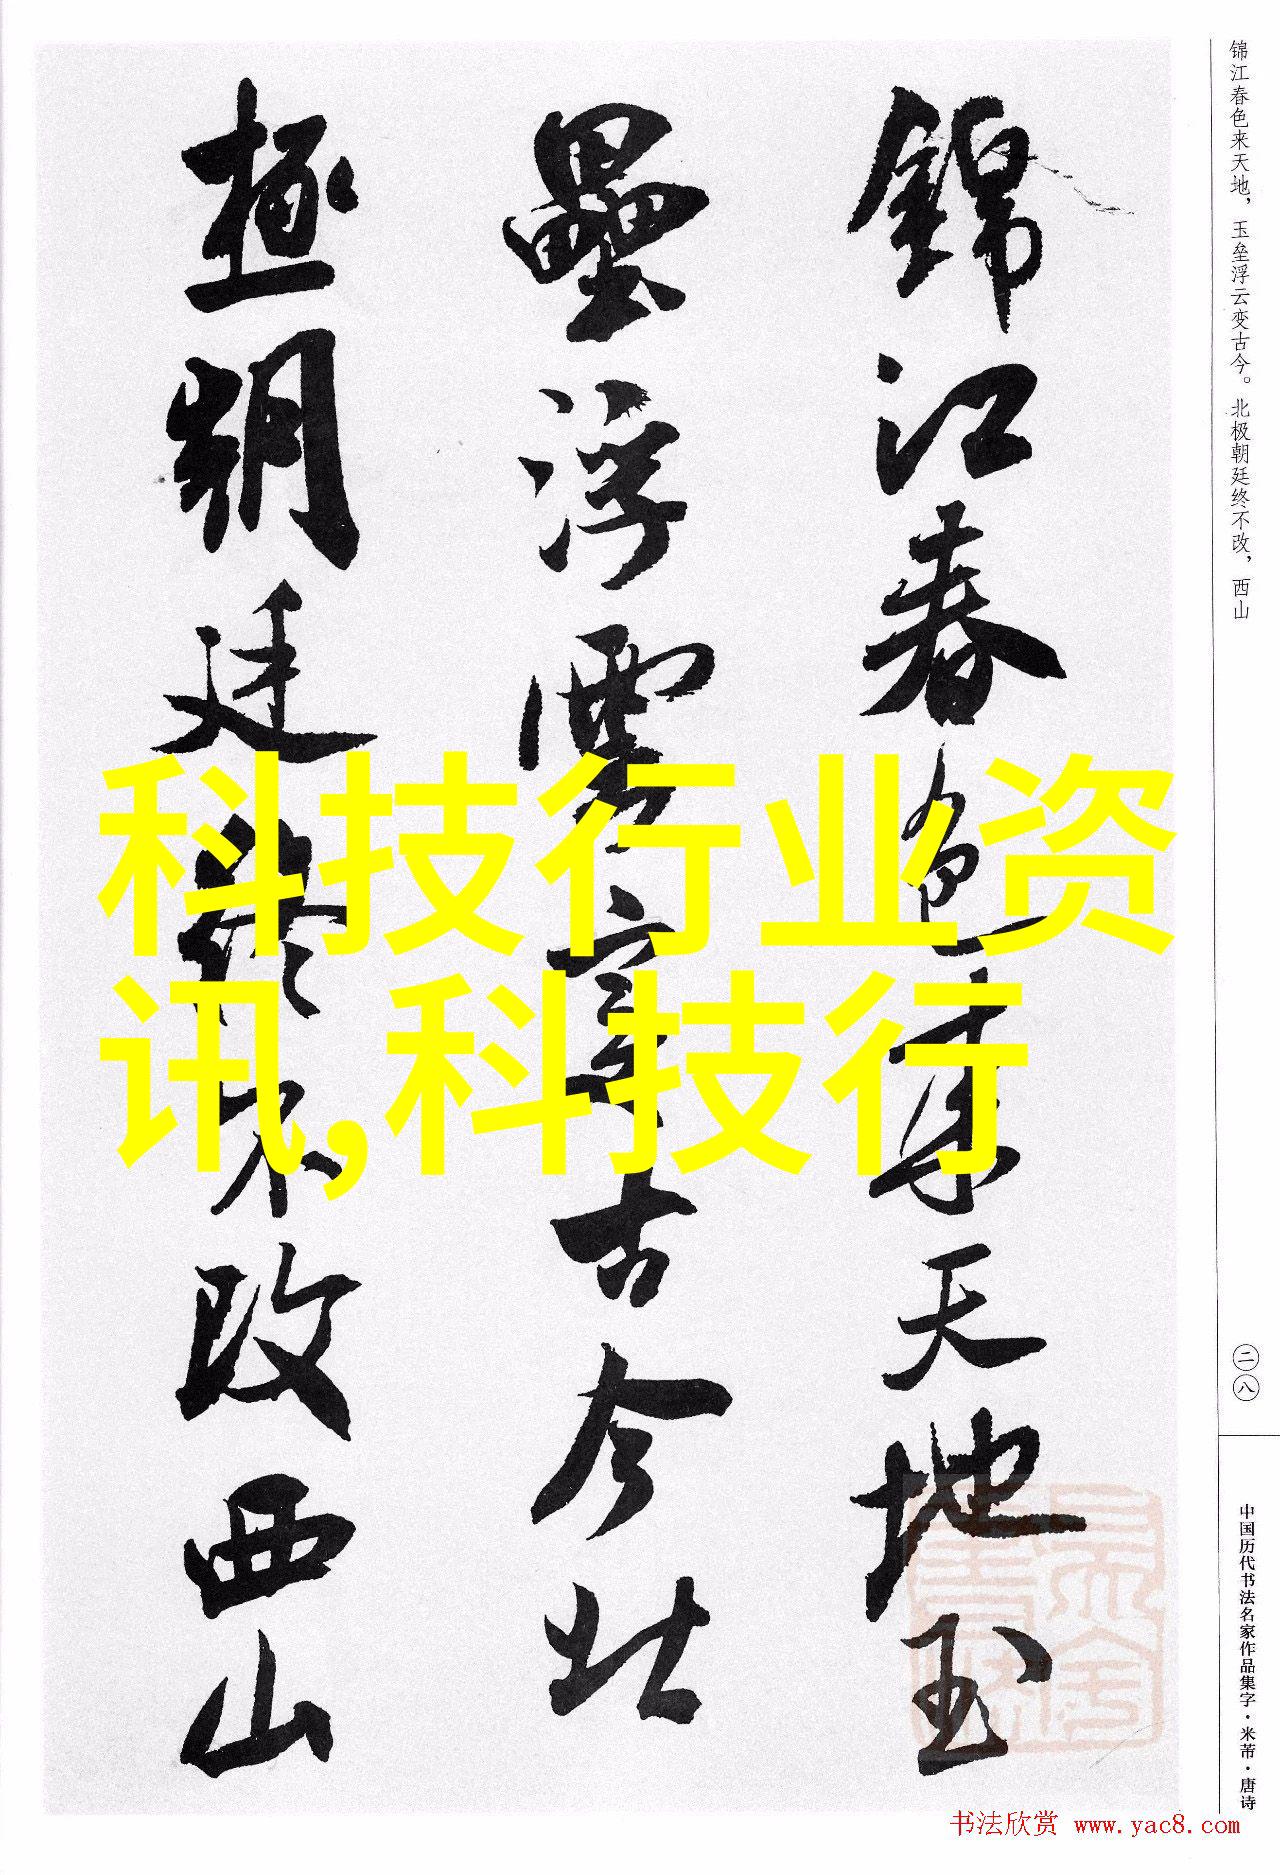 锦江春色来天地，玉垒浮云变古今。北极朝廷终不改，西山
錦江春色来天地玉
壘浮雲變古今北
極朝廷終不改西山
科技行业资
讯,科技行
二八
中国历代书法名家作品集字·米芾·唐诗
书法欣赏 www.yac8.com